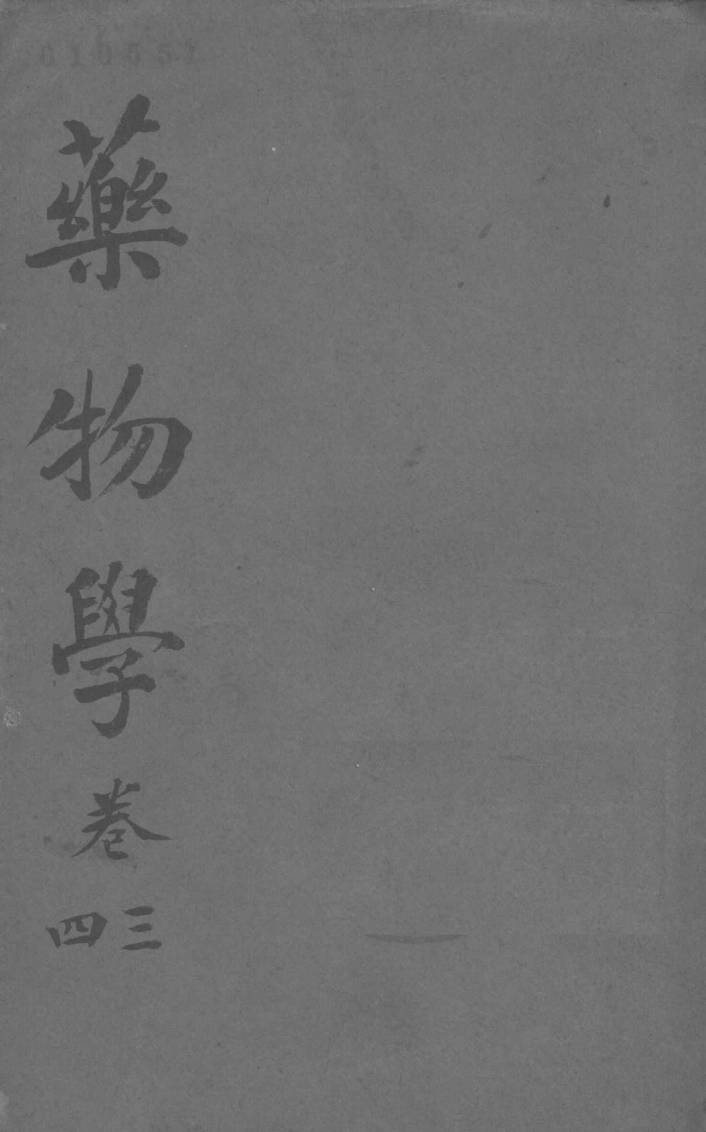 010551
藥物學
卷
三四